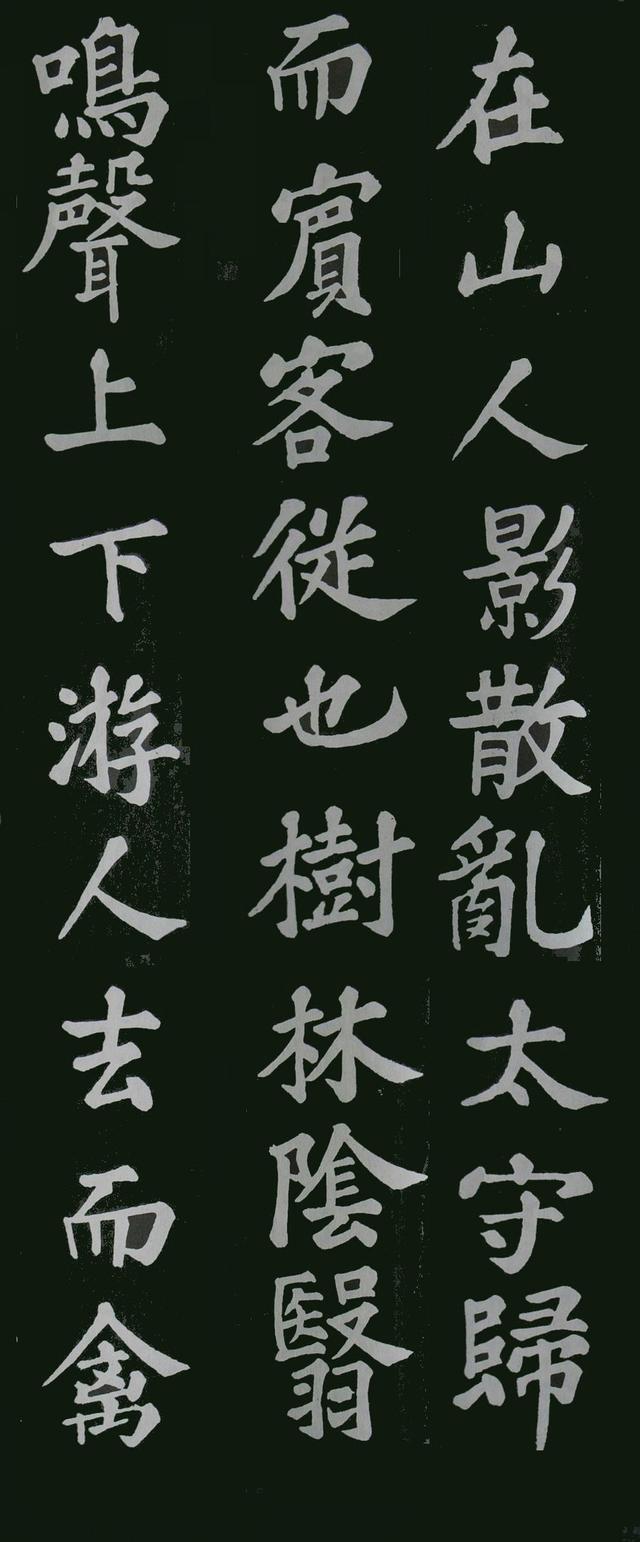 在山人影散亂太守歸
而賔客從也樹林陰翳
鳴聲上下游人去而禽